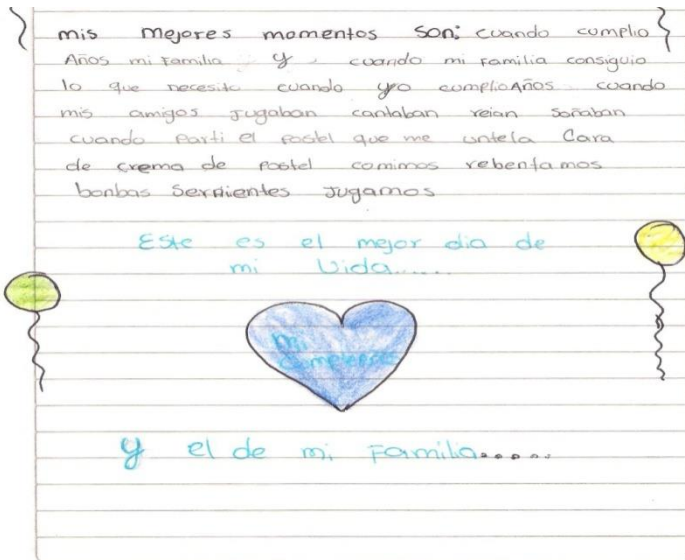 mis mejores momentos son: cuando cumplio
Años mi Familia y cuando mi Familia consiguio
lo que necesito cuando yo cumplioAños cuando
mis amigos jugaban cantaban reian soñaban
cuando Parti el Pastel que me untela Cara
de crema de Pastel comimos rebentamos
bonbas Serpientes jugamos
Este es el mejor dia de
mi Vida......
mi
Cumpleaños
y el de mi Familia......